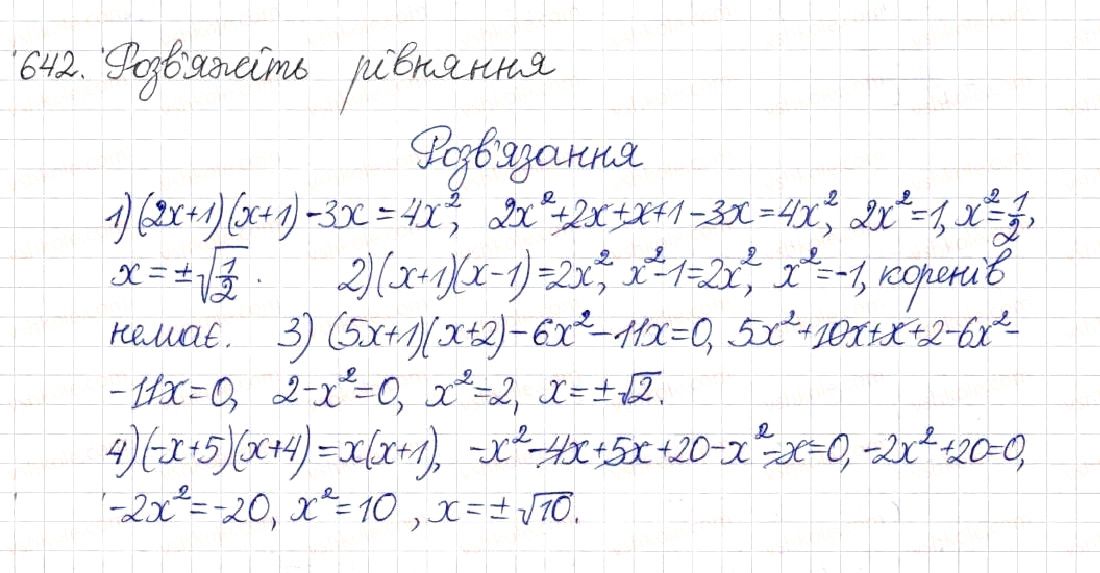 642. Розв'яжіть рівняння
Розв'язання
1) (2x+1)(x+1)-3x=4x², 2x²+2x+x+1-3x=4x², 2x²=1, x²=1/2,
x=±√(1/2). 2) (x+1)(x-1)=2x², x²-1=2x², x²=-1, коренів
немає. 3) (5x+1)(x+2)-6x²-11x=0, 5x²+10x+x+2-6x²-
-11x=0, 2-x²=0, x²=2, x=±√2.
4) (-x+5)(x+4)=x(x+1), -x²-4x+5x+20-x²-x=0, -2x²+20=0,
-2x²=-20, x²=10, x=±√10.